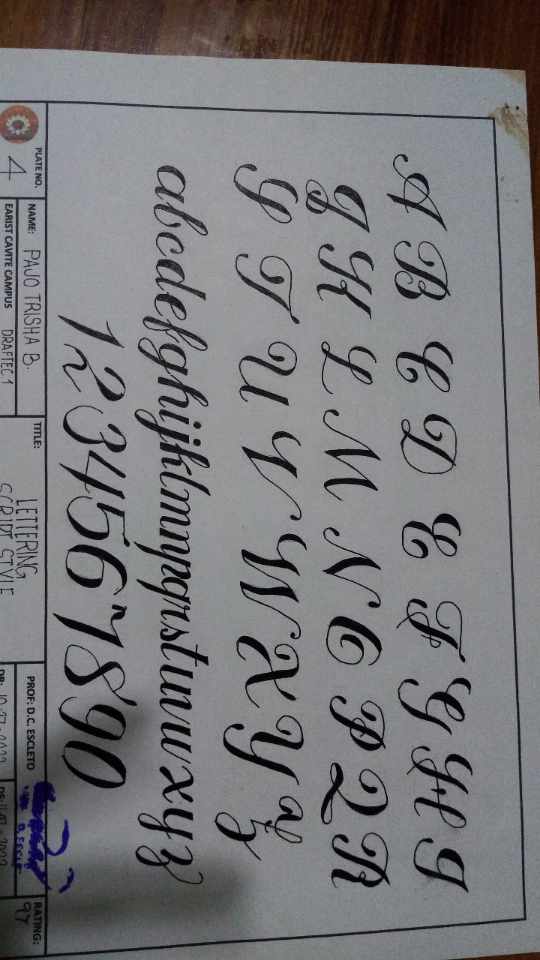 A B C D E F G H I
J K L M N O P Q R
S T U V W X Y Z
abcdefghijklmnpqrstuvwxyz
1234567890
PLATE NO.
4
NAME: PAJO TRISHA B.
EARIST CAVITE CAMPUS DRAFTEC 1
TITLE:
LETTERING
SCRIPT STYLE
PROF: D.C. ESCLETO
RATING:
97